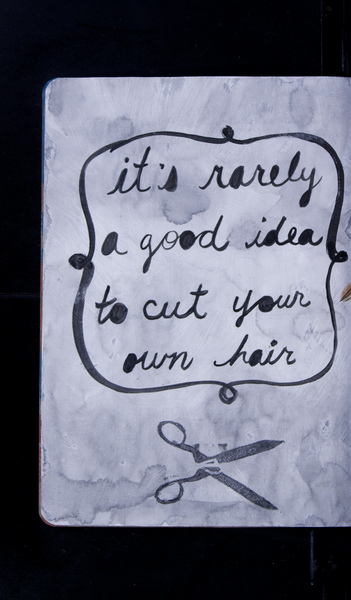 it's rarely
a good idea
to cut your
own hair